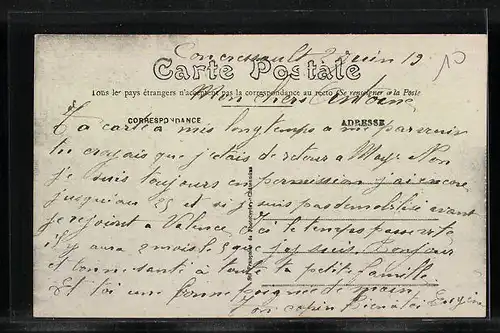 Concressault 2 Juin 19
10
Carte Postale
Tous les pays étrangers n'acceptent pas la correspondance au recto (Se renseigner à la Poste
Mon cher Antoine
CORRESPONDANCE
ADRESSE
Ta carte a mis longtemps a me parvenir
tu croyais que j'etais de retour a May. Non
je suis toujours en permission j'ai encore
jusqu'au 25 et si je suis pas demobilisé avant
je rejoint a Valence. Ici le temps passe vite
il y aura 2 mois le 9 que j'y suis. Bonjour
et bonne santé à toute ta petite famille
Et toi une bonne poignée de main
Ton copin